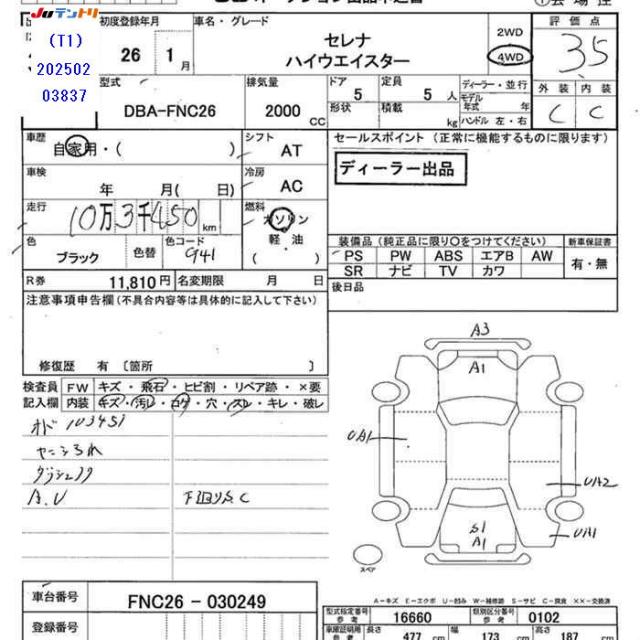 JUテントリ
(T1)
202502
03837
初度登録年月
車名・グレード
26 1月
セレナ
ハイウエイスター
2WD
4WD
評価点
3.5
外装 内装
C C
型式
DBA-FNC26
排気量
2000 CC
ドア 5
形状
定員 5人
積載 kg
ディーラー・並行
モデル年式 年
ハンドル 左・右
車歴
自家用・( )
シフト AT
セールスポイント (正常に機能するものに限ります)
ディーラー出品
車検
年 月( 日)
冷房 AC
走行
10万3千450 km
燃料
ガソリン
軽油
( )
色
ブラック
色替
色コード
G41
装備品 (純正品に限り○をつけてください)
新車保証書
PS PW ABS エアB AW
SR ナビ TV カワ
有・無
R券 11,810円
名変期限 月 日
後日品
注意事項申告欄 (不具合内容等は具体的に記入して下さい)
修復歴 有 〔箇所 〕
検査員 FW キズ・飛石・ヒビ割・リペア跡・×要
記入欄 内装 キズ・汚レ・コゲ・穴・スレ・キレ・破レ
オド 103451
A.U
下廻りS C
A3
A1
UA1
UA2
S1
A1
UA1
スペア
A-キズ E-エクボ U-凹み W-補修跡 S-サビ C-腐食 ××-交換済
車台番号
FNC26 - 030249
登録番号
型式指定番号
参考
16660
類別区分番号
参考
0102
車庫証明用
参考
長さ 477 cm
幅 173 cm
高さ 187 cm